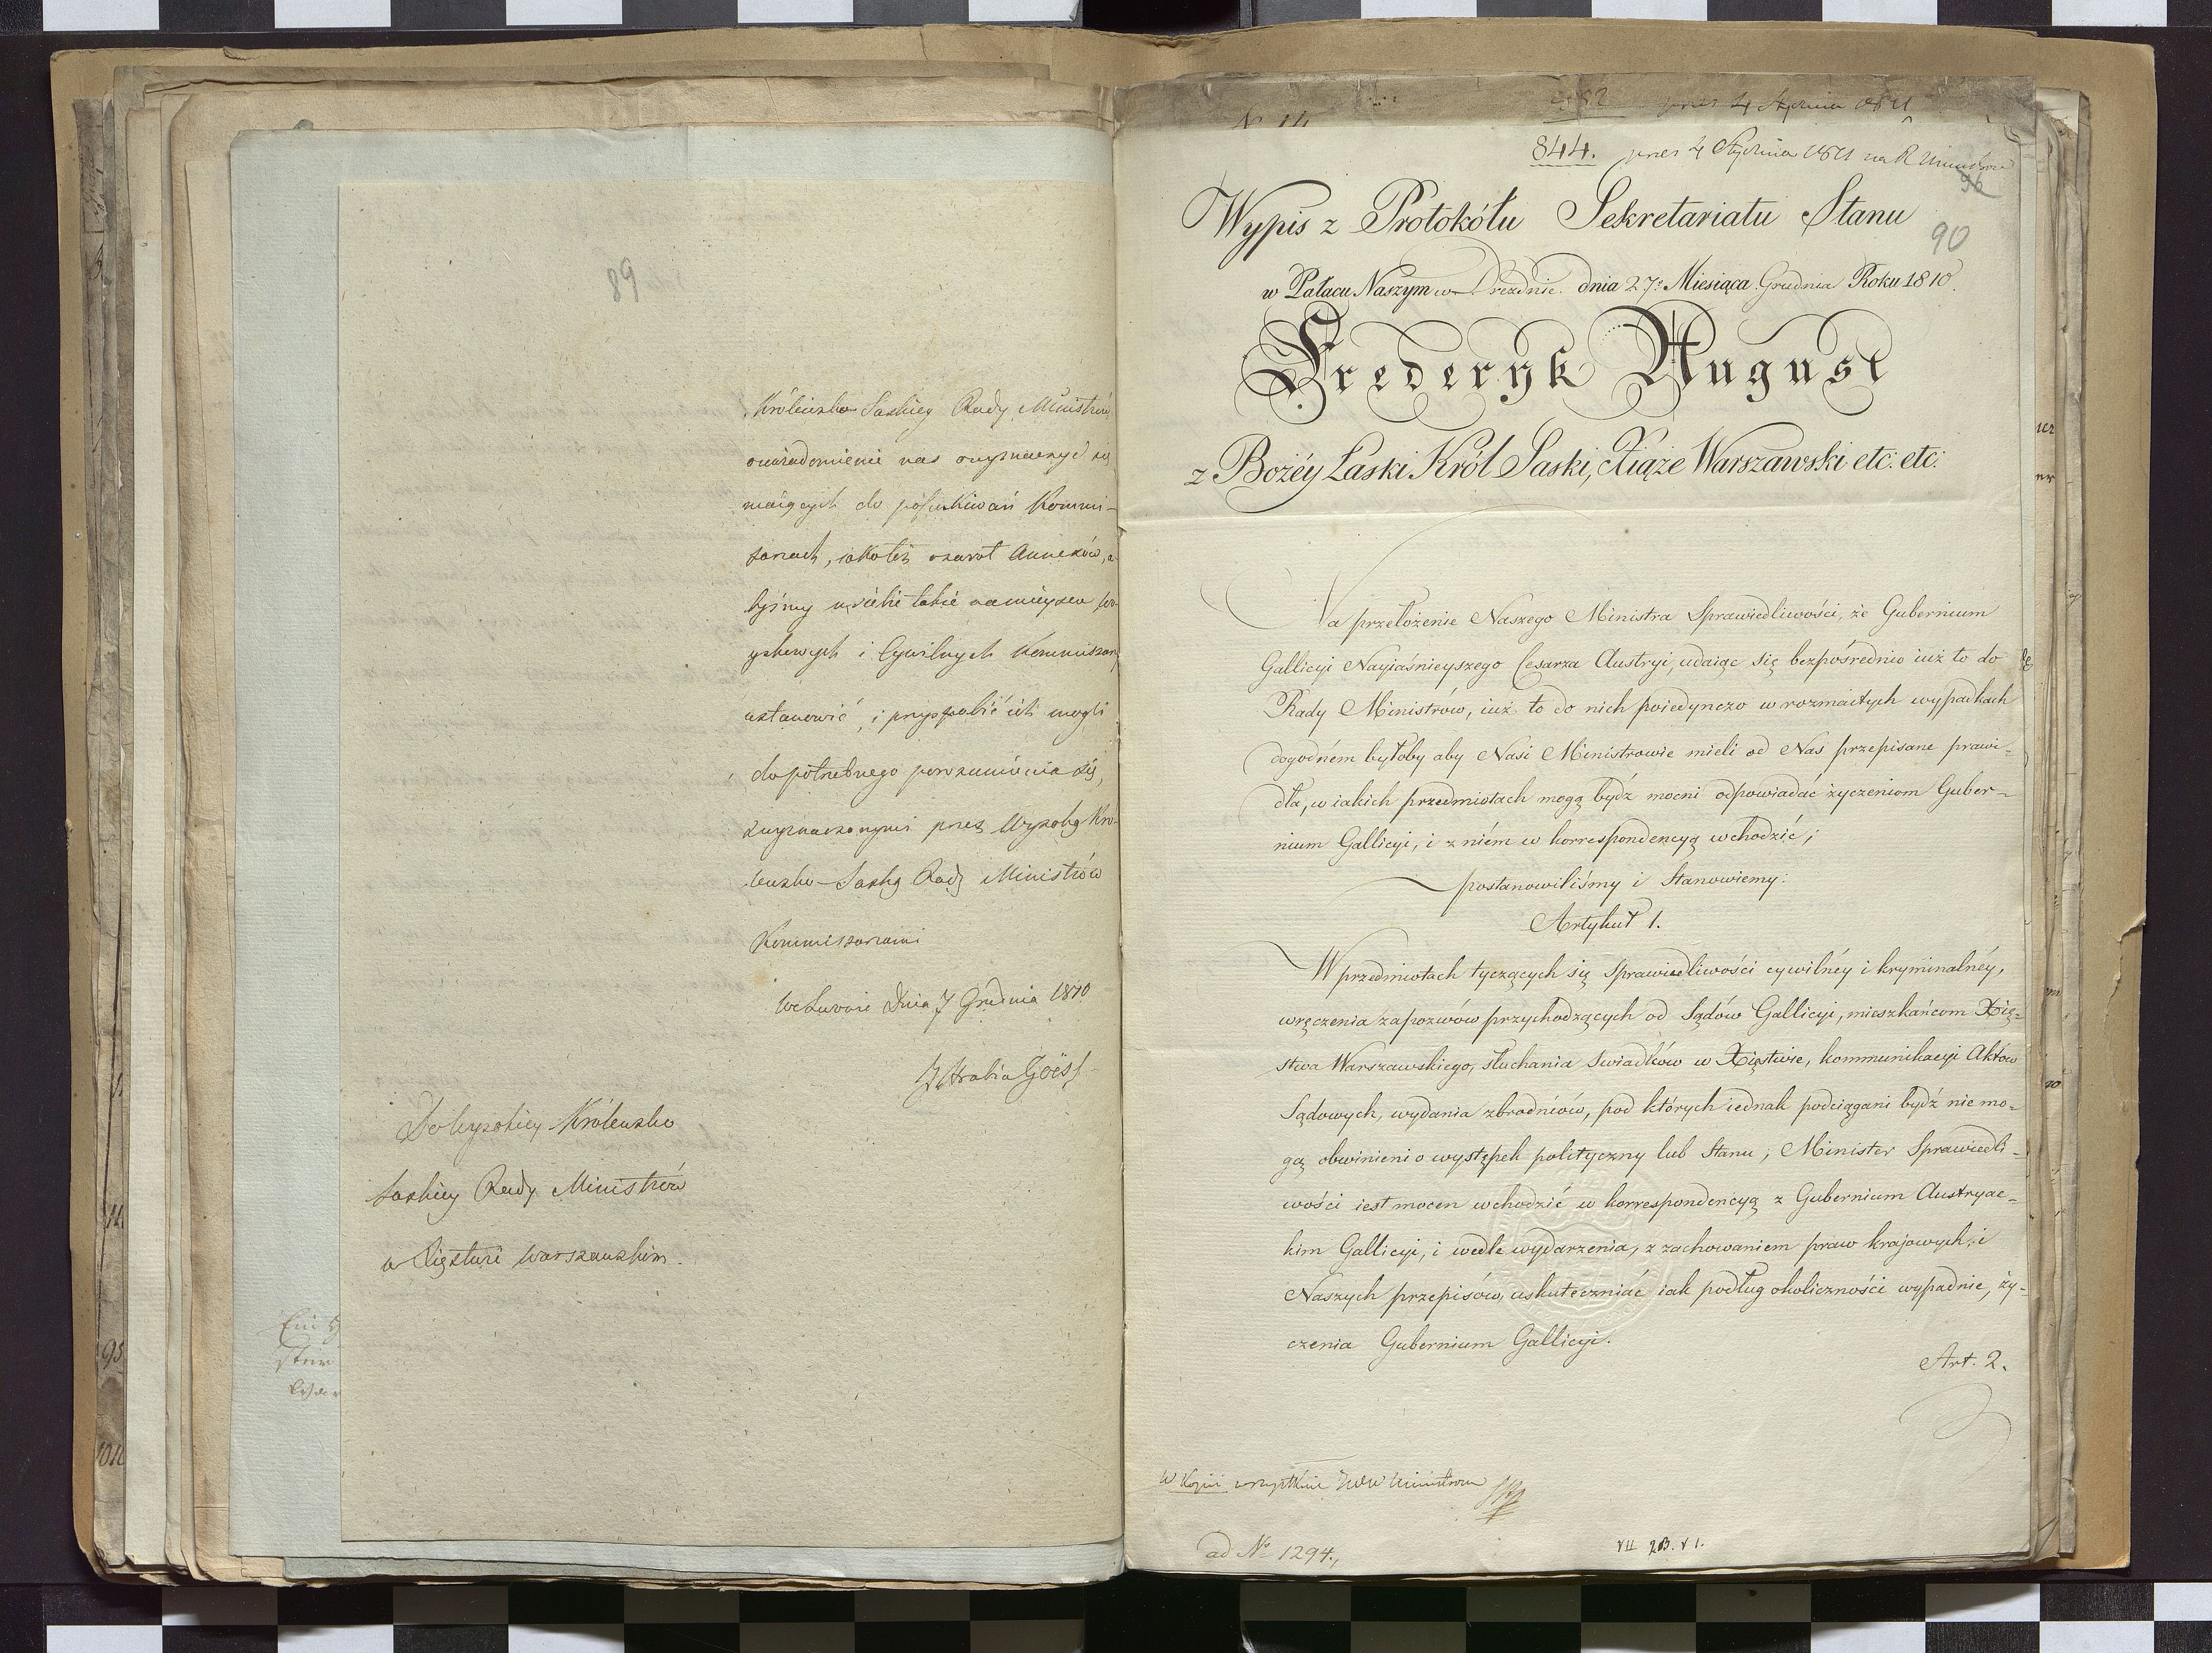 89
Królewsko Saskiey Rady Ministrów
uwiadomienie nas
maiących do poszukiwań Kommi-
sarzach, iakoteż zwrot Annexów, a-
byśmy takie
i Cywilnych Kommissarzy
ustanowić, i przysposobić ich mogli
do potrzebnego porozumienia się,
z wyznaczonymi przez Wysoką Kró-
lewsko-Saską Radę Ministrów
Kommissarzami
We Lwowie Dnia 7 Grudnia 1810
Hrabia Goëss
Do Wysokiey Królewsko
Saskiey Rady Ministrów
w Xięstwie Warszawskim.
844. prez 4 Stycznia 1811 na R Ministrów
96
Wypis z Protokółu Sekretariatu Stanu
90
w Pałacu Naszym w Dreźnie dnia 27. Miesiąca Grudnia Roku 1810.
Frederyk August
z Bożéy Łaski Król Saski, Xiąże Warszawski etc. etc.
Na przełożenie Naszego Ministra Sprawiedliwości, że Gubernium
Gallicyi Nayiaśnieyszego Cesarza Austryi, udaiąc się bezpośrednio iuż to do
Rady Ministrów, iuż to do nich poiedynczo w rozmaitych wypadkach
dogodném byłoby aby Nasi Ministrowie mieli od Nas przepisane prawi-
dła, w iakich przedmiotach mogą bydź mocni odpowiadać życzeniom Guber-
nium Gallicyi, i z niém w korrespondencyą wchodzić;
postanowiliśmy i Stanowiemy:
Artykuł 1.
W przedmiotach tyczących się Sprawiedliwości cywilnéy i kryminalnéy,
wręczenia zapozwów przychodzących od Sądów Gallicyi, mieszkańcom Xię-
stwa Warszawskiego, słuchania Swiadków w Xięstwie, kommunikacyi Aktów
Sądowych, wydania zbrodniów, pod których iednak podciągani bydź nie mo-
gą obwinieni o występek polityczny lub Stanu; Minister Sprawiedli-
wości iest mocen wchodzić w korrespondencyą z Gubernium Austryac-
kim Gallicyi, i wedle wydarzenia, z zachowaniem praw krajowych, i
Naszych przepisów, uskuteczniać iak podług okoliczności wypadnie, ży-
czenia Gubernium Gallicyi.
Art. 2.
W Kopii wszystkim JWW Ministrom
ad No 1294.